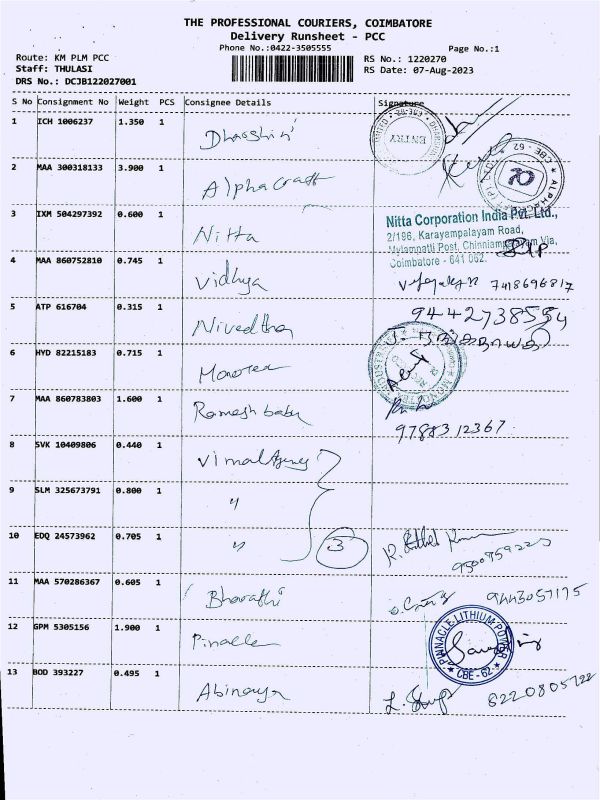 THE PROFESSIONAL COURIERS, COIMBATORE
Delivery Runsheet - PCC
Phone No.:0422-3505555
Page No.:1
Route: KM PLM PCC
Staff: THULASI
DRS No.: DCJB122027001
RS No.: 1220270
RS Date: 07-Aug-2023
S No Consignment No Weight PCS Consignee Details Signature
1 ICH 1006237 1.350 1
ENTRY
2 MAA 300318133 3.900 1 Alphacraft
CBE - 62
3 IXM 504297392 0.600 1 Nitta
Nitta Corporation India Pvt. Ltd.,
2/196, Karayampalayam Road,
Mylampatti Post, Chinniampalayam Via,
Coimbatore - 641 062.
4 MAA 860752810 0.745 1 Vidhya 7418696817
5 ATP 616704 0.315 1 Nivedtha 9442738554
6 HYD 82215183 0.715 1
7 MAA 860783803 1.600 1 Ramesh babu
9788312367
8 SVK 10409806 0.440 1 Vimal Agency
9 SLM 325673791 0.800 1 "
10 EDQ 24573962 0.705 1 " 3
11 MAA 570286367 0.605 1 Bharathi 9443057175
12 GPM 5305156 1.900 1 Pinacle
PINNACLE LITHIUM POWER
CBE - 62
13 BOD 393227 0.495 1 Abinaya 6220805722